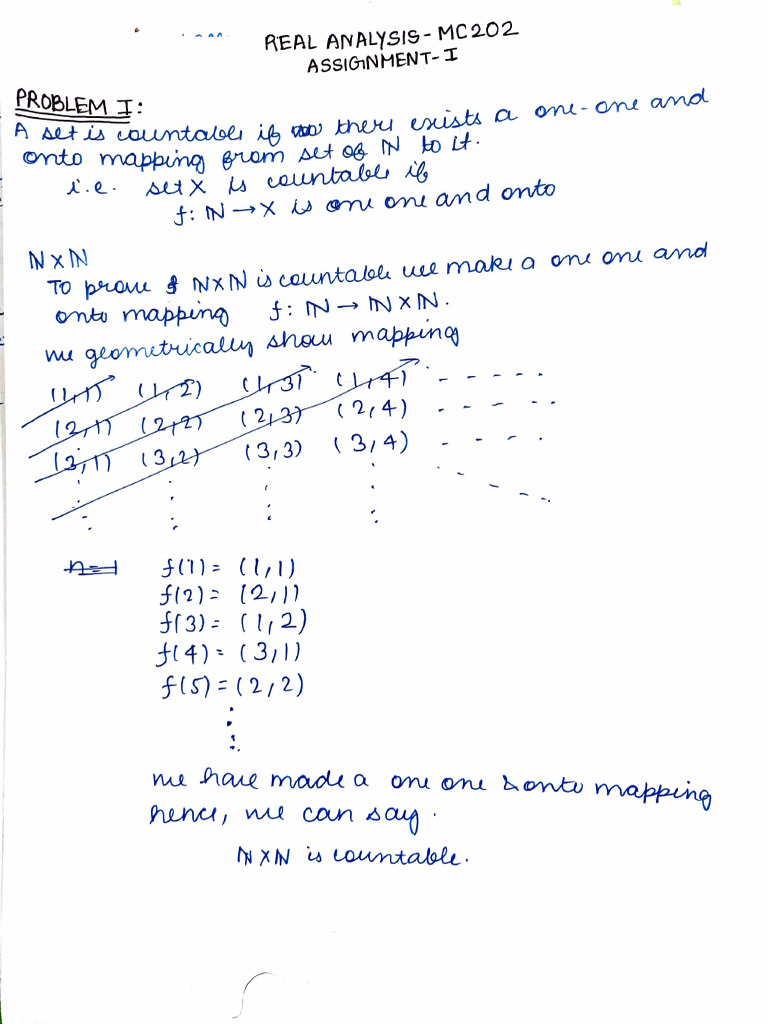 REAL ANALYSIS - MC202
ASSIGNMENT - I
PROBLEM I:
A set is countable if there exists a one-one and
onto mapping from set of ℕ to it.
i.e. set X is countable if
f: ℕ → X is one one and onto
ℕ X ℕ
To prove ℕXℕ is countable we make a one one and
onto mapping f: ℕ → ℕ X ℕ.
we geometrically show mapping
(1,1) (1,2) (1,3) (1,4) - - - - -
(2,1) (2,2) (2,3) (2,4) - - - - -
(3,1) (3,2) (3,3) (3,4) - - - -
n=1 f(1) = (1,1)
f(2) = (2,1)
f(3) = (1,2)
f(4) = (3,1)
f(5) = (2,2)
we have made a one one & onto mapping
hence, we can say.
ℕ X ℕ is countable.